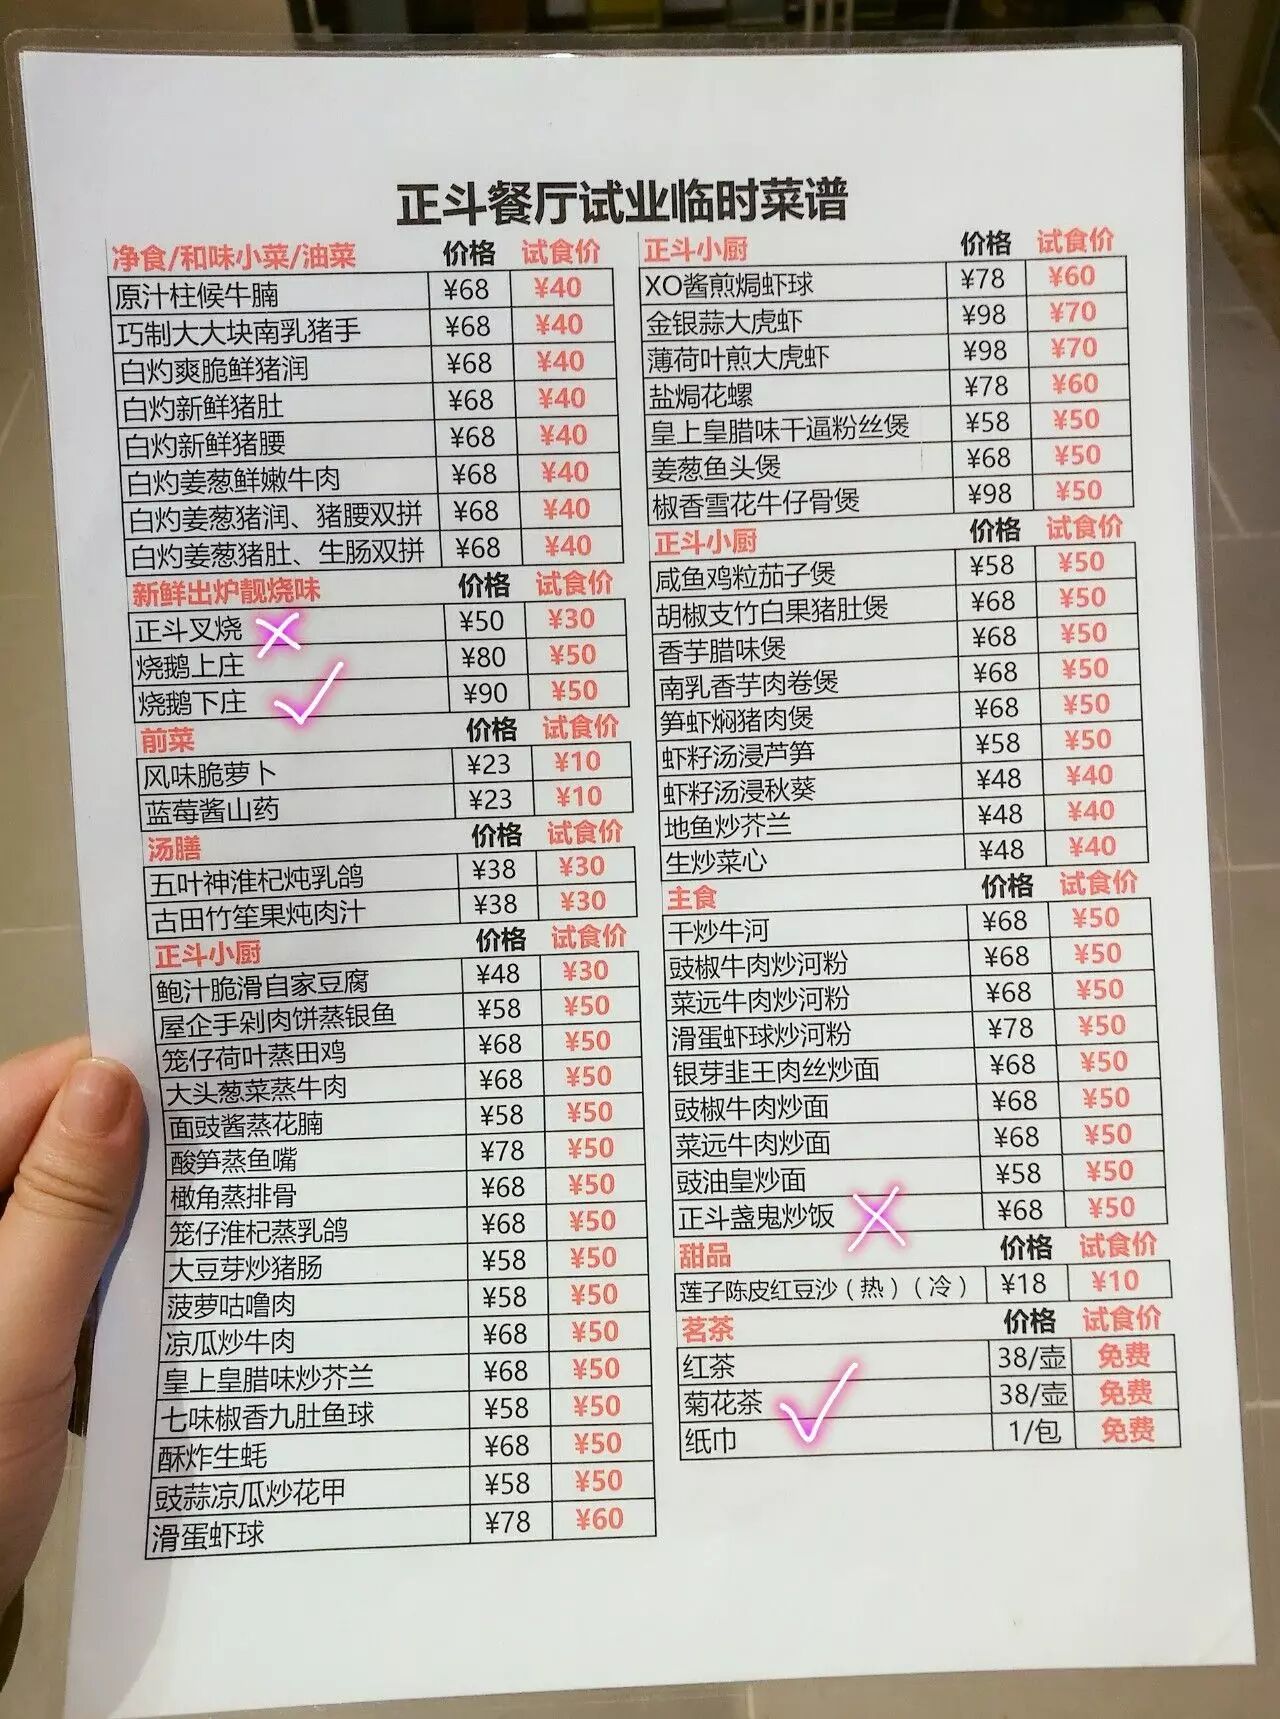 正斗餐厅试业临时菜谱
净食/和味小菜/油菜 价格 试食价
原汁柱候牛腩 ¥68 ¥40
巧制大大块南乳猪手 ¥68 ¥40
白灼爽脆鲜猪润 ¥68 ¥40
白灼新鲜猪肚 ¥68 ¥40
白灼新鲜猪腰 ¥68 ¥40
白灼姜葱鲜嫩牛肉 ¥68 ¥40
白灼姜葱猪润、猪腰双拼 ¥68 ¥40
白灼姜葱猪肚、生肠双拼 ¥68 ¥40
新鲜出炉靓烧味 价格 试食价
正斗叉烧 ¥50 ¥30
烧鹅上庄 ¥80 ¥50
烧鹅下庄 ¥90 ¥50
前菜 价格 试食价
风味脆萝卜 ¥23 ¥10
蓝莓酱山药 ¥23 ¥10
汤膳 价格 试食价
五叶神淮杞炖乳鸽 ¥38 ¥30
古田竹笙果炖肉汁 ¥38 ¥30
正斗小厨 价格 试食价
鲍汁脆滑自家豆腐 ¥48 ¥30
屋企手剁肉饼蒸银鱼 ¥58 ¥50
笼仔荷叶蒸田鸡 ¥68 ¥50
大头葱菜蒸牛肉 ¥68 ¥50
面豉酱蒸花腩 ¥58 ¥50
酸笋蒸鱼嘴 ¥78 ¥50
橄角蒸排骨 ¥68 ¥50
笼仔淮杞蒸乳鸽 ¥68 ¥50
大豆芽炒猪肠 ¥58 ¥50
菠萝咕噜肉 ¥58 ¥50
凉瓜炒牛肉 ¥68 ¥50
皇上皇腊味炒芥兰 ¥68 ¥50
七味椒香九肚鱼球 ¥58 ¥50
酥炸生蚝 ¥68 ¥50
豉蒜凉瓜炒花甲 ¥58 ¥50
滑蛋虾球 ¥78 ¥60
正斗小厨 价格 试食价
XO酱煎焗虾球 ¥78 ¥60
金银蒜大虎虾 ¥98 ¥70
薄荷叶煎大虎虾 ¥98 ¥70
盐焗花螺 ¥78 ¥60
皇上皇腊味干逼粉丝煲 ¥58 ¥50
姜葱鱼头煲 ¥68 ¥50
椒香雪花牛仔骨煲 ¥98 ¥50
正斗小厨 价格 试食价
咸鱼鸡粒茄子煲 ¥58 ¥50
胡椒支竹白果猪肚煲 ¥68 ¥50
香芋腊味煲 ¥68 ¥50
南乳香芋肉卷煲 ¥68 ¥50
笋虾焖猪肉煲 ¥68 ¥50
虾籽汤浸芦笋 ¥58 ¥50
虾籽汤浸秋葵 ¥48 ¥40
地鱼炒芥兰 ¥48 ¥40
生炒菜心 ¥48 ¥40
主食 价格 试食价
干炒牛河 ¥68 ¥50
豉椒牛肉炒河粉 ¥68 ¥50
菜远牛肉炒河粉 ¥68 ¥50
滑蛋虾球炒河粉 ¥78 ¥50
银芽韭王肉丝炒面 ¥68 ¥50
豉椒牛肉炒面 ¥68 ¥50
菜远牛肉炒面 ¥68 ¥50
豉油皇炒面 ¥58 ¥50
正斗盏鬼炒饭 ¥68 ¥50
甜品 价格 试食价
莲子陈皮红豆沙（热）（冷） ¥18 ¥10
茗茶 价格 试食价
红茶 38/壶 免费
菊花茶 38/壶 免费
纸巾 1/包 免费